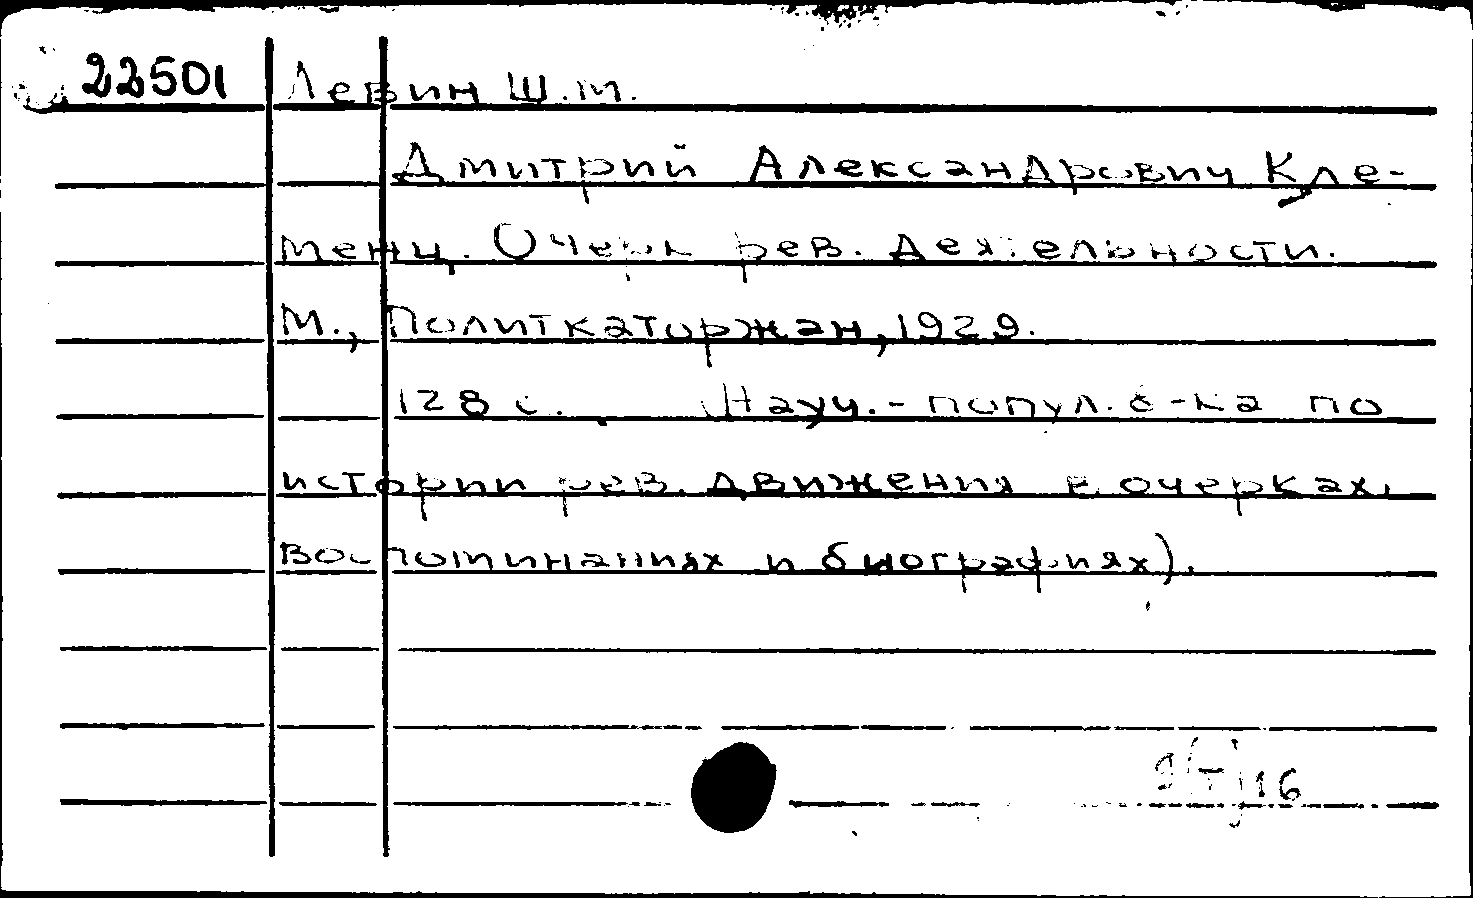 22501 Левин Ш.М.
Дмитрий Александрович Кле-
менц. Очерк рев. деятельности.
М., Политкаторжан, 1929.
128 с. (Науч.-попул. б-ка по
истории рев. движения в очерках,
воспоминаниях и биографиях).
9(Т)16